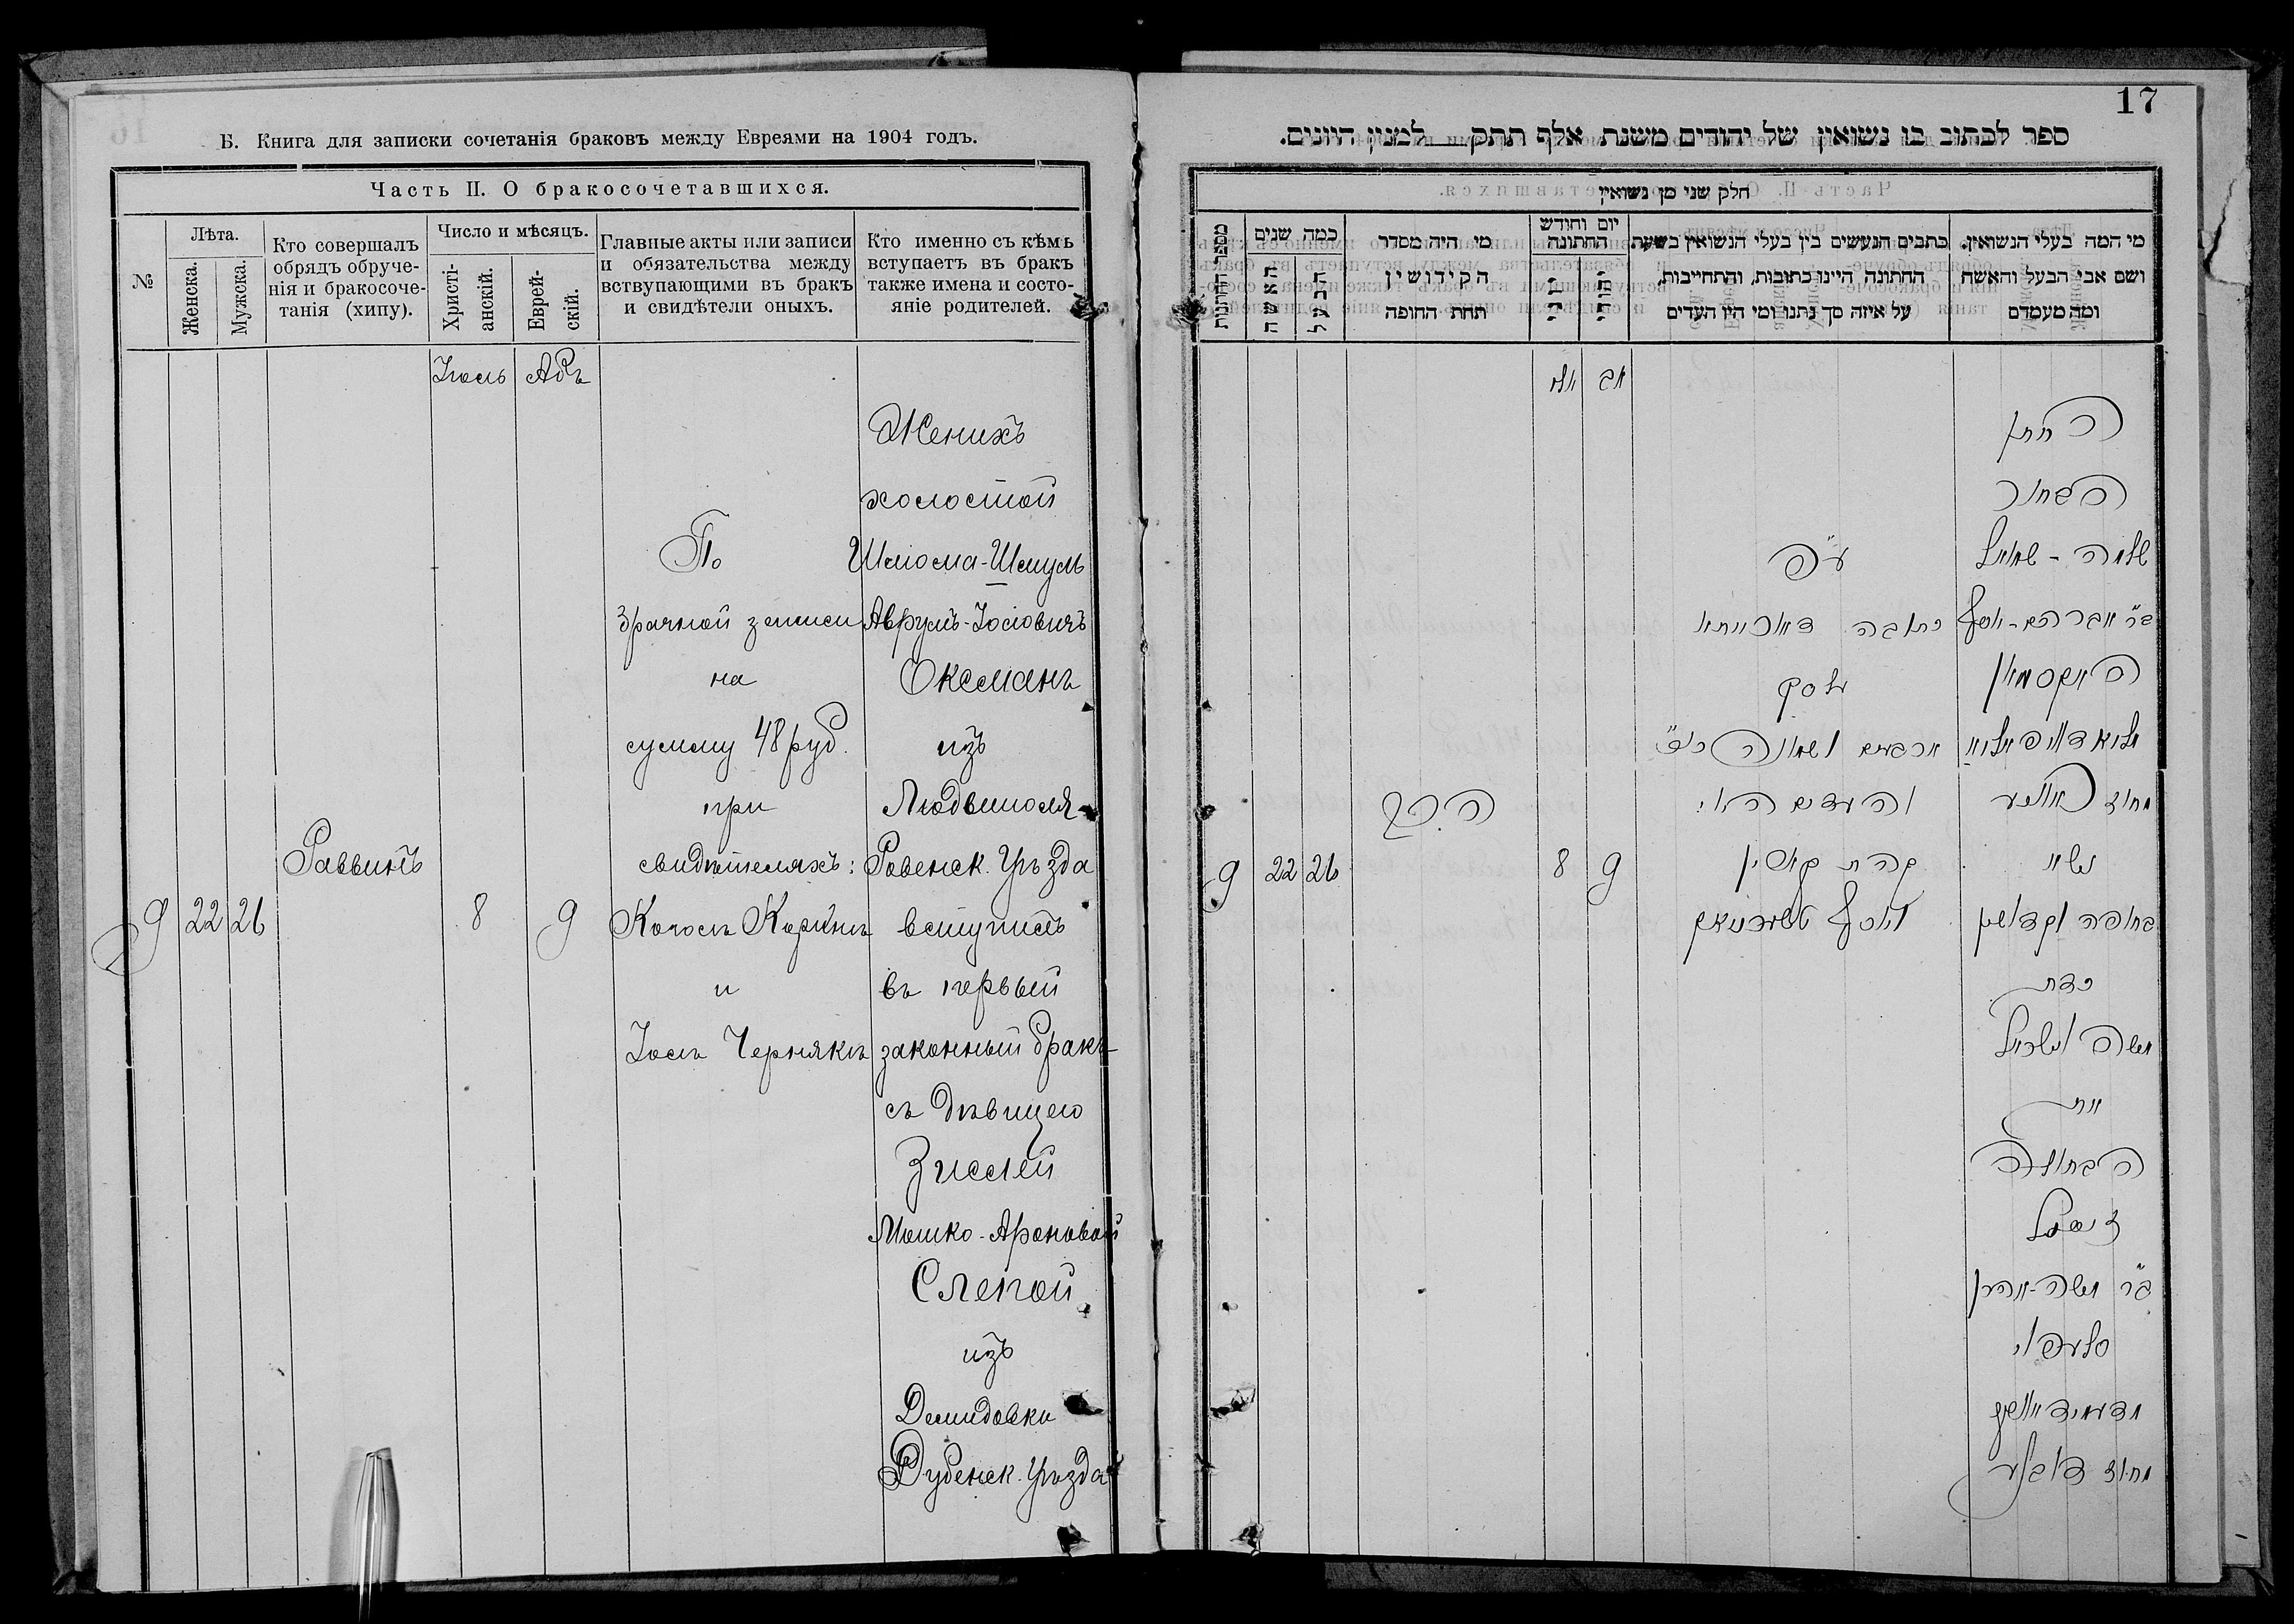 Б. Книга для записки сочетанія браковъ между Евреями на 1904 годъ.
Часть II. О бракосочетавшихся.
№
Лѣта.
Женска.
Мужска.
Кто совершалъ
обрядъ обруче-
нія и бракосоче-
танія (хипу).
Число и мѣсяцъ.
Христі-
анскій.
Еврей-
скій.
Главные акты или записи
и обязательства между
вступающими въ бракъ
и свидѣтели оныхъ.
Кто именно съ кѣмъ
вступаетъ въ бракъ
также имена и состо-
яніе родителей.
Іюль
Абъ
9
22
26
Раввинъ
8
9
По
брачной записи
на
сумму 48 руб.
при
свидѣтеляхъ:
и
Іосъ Чернякъ
Женихъ
холостой
Шліома-Шмуль
Аврумъ-Іосіовичъ
Оксманъ
изъ
Людвиполя
Ровенск. Уѣзда
вступилъ
въ первый
законный бракъ
съ дѣвицею
Зислей
Мошко-Ароновой
Слепой
изъ
Демидовки
Дубенск. Уѣзда
17
ספר לכתוב בו נשואין של יהודים משנת אלף תתק למנין היונים.
חלק שני מן נשואין
מספר החתונות
כמה שנים
האשה
הבעל
מי היה מסדר
הקידושין
תחת החופה
יום וחודש
החתונה
נוצרי
יהודי
כתבים הנעשים בין בעלי הנשואין בשעת
החתונה היינו כתובות, והתחייבות,
על איזה סך נתנו ומי היו העדים
מי המה בעלי הנשואין,
ושם אבי הבעל והאשה
ומה מעמדם
יולי
אב
9
22
26
הרב
8
9
ע״פ
כתובה דאורייתא
על סך
ארבעים ושמונה רו״כ
והעדים הי׳
החתן
הבחור
שלמה - שמואל
ב״ר אברהם-יוסף
אקסמאן
נשא
בחופה וקדושין
כדת
משה וישראל
את
הבתולה
זיסל
ב״ר משה-אהרן
סלעפוי